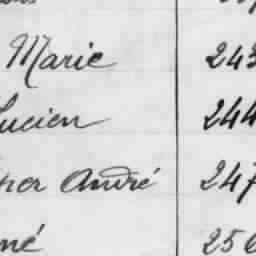 Marie 243
Lucien 244
per André 247
né 256